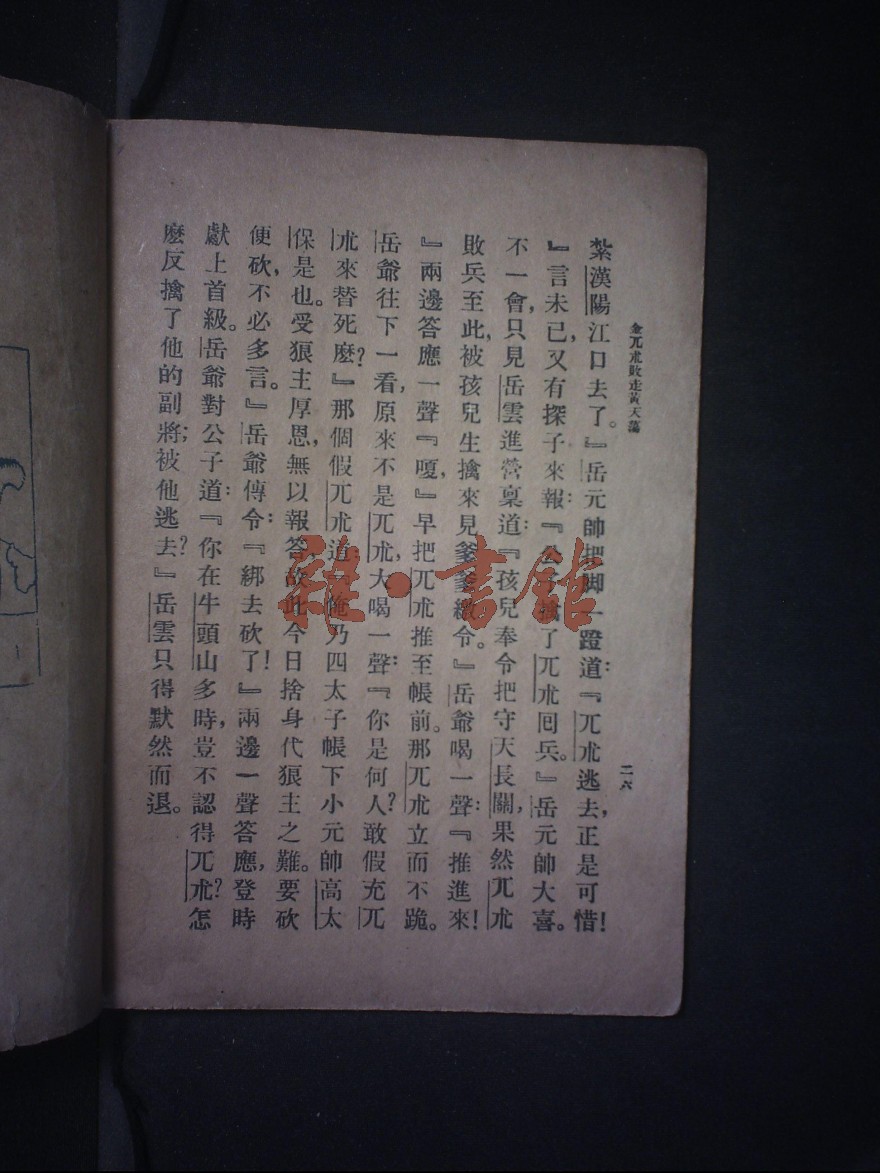 金兀朮敗走黃天蕩
二六
紮漢陽江口去了。』岳元帥把脚一蹬道：『兀朮逃去，正是可惜！
』言未已，又有探子來報：『公子擒了兀朮囘兵。』岳元帥大喜。
不一會，只見岳雲進營稟道：『孩兒奉令把守天長關，果然兀朮
敗兵至此，被孩兒生擒來見爹爹繳令。』岳爺喝一聲：『推進來！
』兩邊答應一聲『嗄，』早把兀朮推至帳前。那兀朮立而不跪。
岳爺往下一看，原來不是兀朮，大喝一聲：『你是何人？敢假充兀
朮來替死麽？』那個假兀朮道：『俺乃四太子帳下小元帥高太
保是也。受狼主厚恩，無以報答，故此今日捨身代狼主之難。要砍
便砍，不必多言。』岳爺傳令：『綁去砍了！』兩邊一聲答應，登時
獻上首級。岳爺對公子道：『你在牛頭山多時，豈不認得兀朮？怎
麽反擒了他的副將；被他逃去？』岳雲只得默然而退。
雜·書館